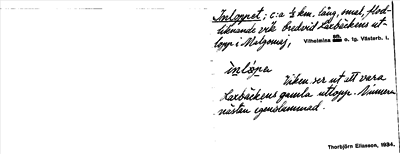 Inloppet; c:a ½ km. lång, smal, flod-
liknande vik bredvid Laxbäckens ut-
lopp i Malgomaj, Vilhelmina sn. o. tg. Västerb. l.
inlòpə
Viken ser ut att vara
Laxbäckens gamla utlopp. Numera
nästan igenslammad.
Thorbjörn Eliasson, 1934.